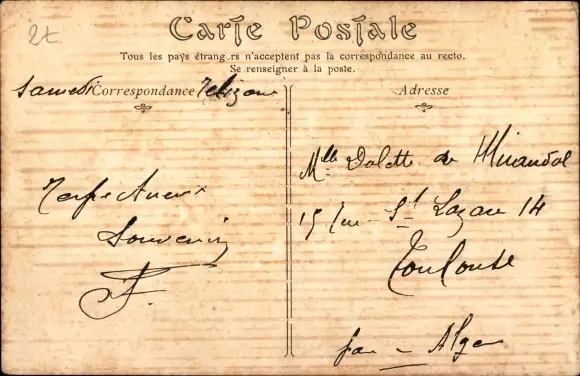 2t
Carte Postale
Tous les pays étrangers n'acceptent pas la correspondance au recto.
Se renseigner à la poste.
Samedi Correspondance
Adresse
Respectueux
Souvenir
Mlle Dolette de Mirandol
15 rue St Lazare 14
Toulouse
par - Alger